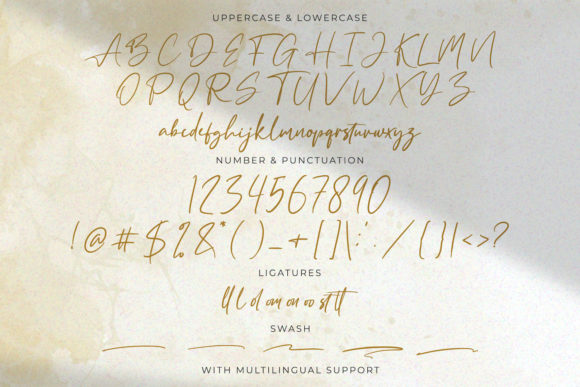 UPPERCASE & LOWERCASE
A B C D E F G H I J K L M N
O P Q R S T U V W X Y Z
abcdefghijklmnopqrstuvwxyz
NUMBER & PUNCTUATION
1234567890
! @ # $ % & * ( ) _ + [ ] \ ; ' : / { } | < > ?
LIGATURES
SWASH
WITH MULTILINGUAL SUPPORT